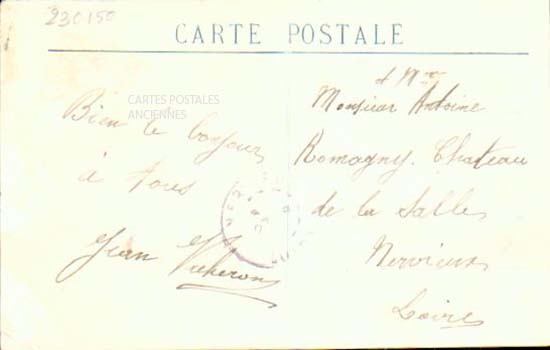 230150
CARTE POSTALE
CARTES POSTALES
ANCIENNES
Bien le bonjour
à tous
Jean
et Mme
Monsieur Antoine
Romagny. Chateau
de la Salle
Nervieux
Loire